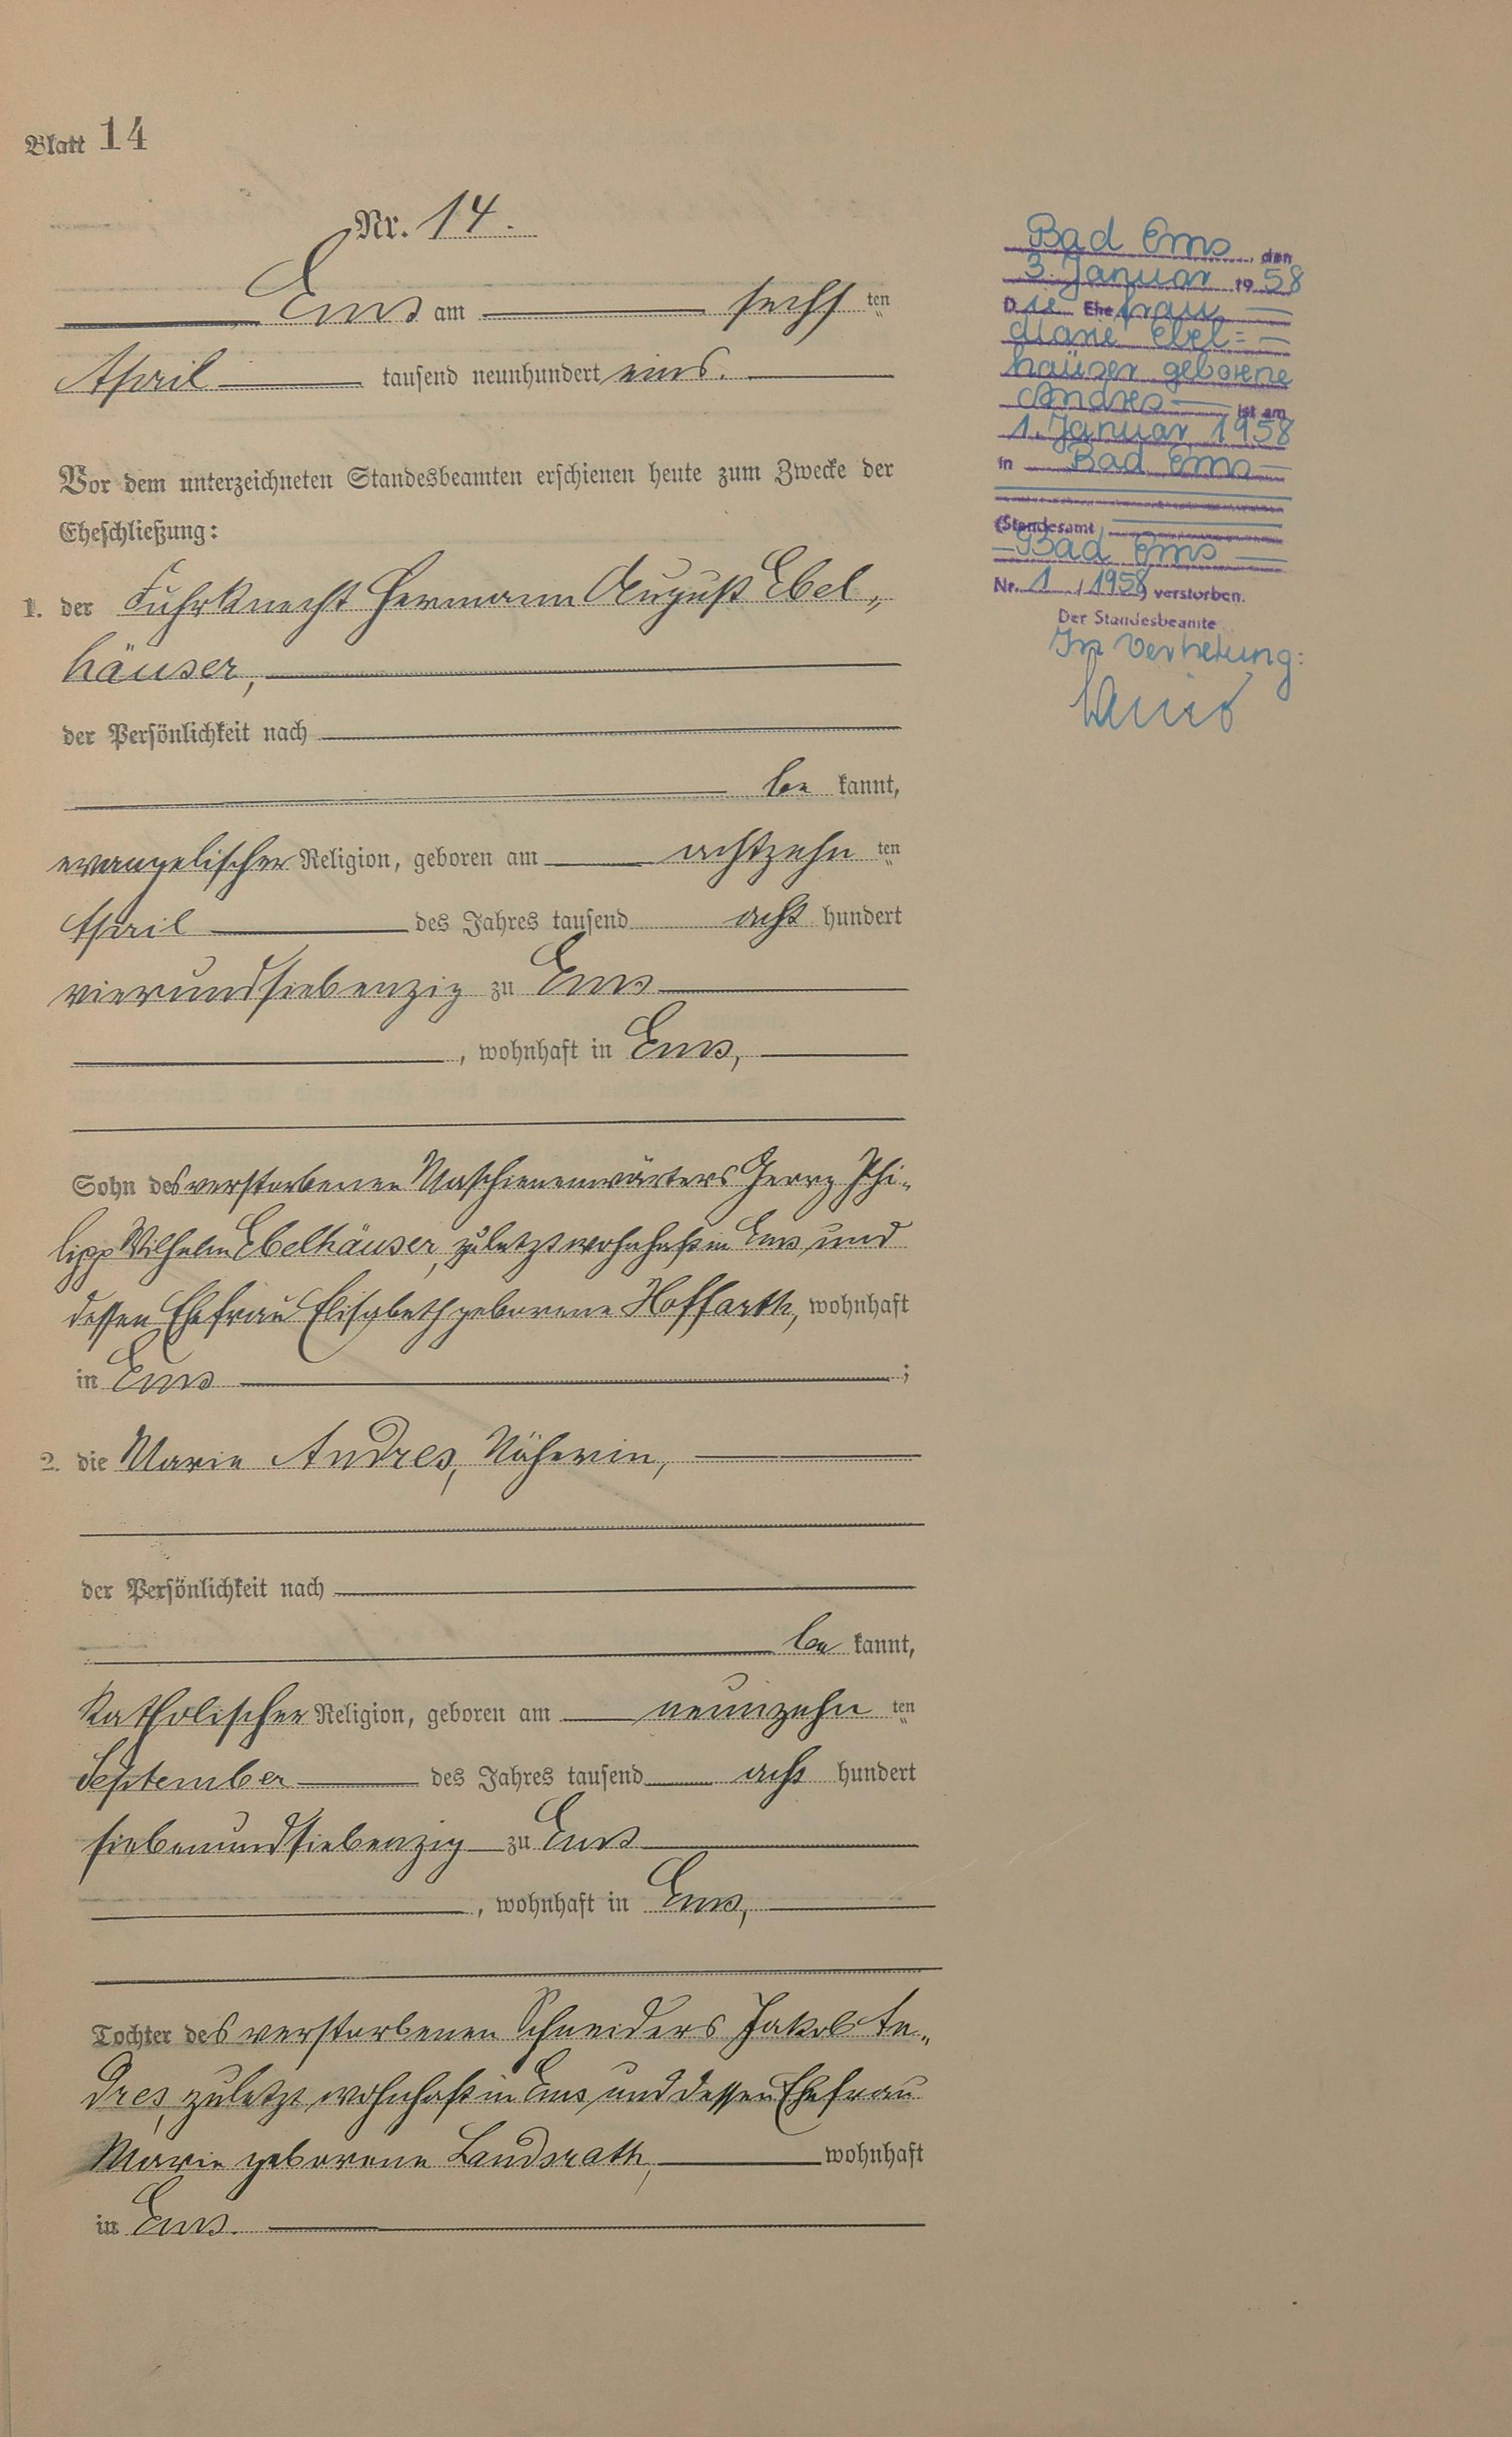 Blatt 14
Nr. 14.
Ems am sechs ten
April tausend neunhundert eins.
Vor dem unterzeichneten Standesbeamten erschienen heute zum Zwecke der
Eheschließung:
1. der Fuhrknecht Hermann August Ebel„
häuser,
der Persönlichkeit nach
be kannt,
evangelischer Religion, geboren am achtzehn ten
April des Jahres tausend acht hundert
vierundsiebenzig zu Ems
, wohnhaft in Ems,
Sohn des verstorbenen Maschienenwärters Georg Phi„
lipp Wilhelm Ebelhäuser, zuletzt wohnhaft in Ems und
dessen Ehefrau Elisabeth geborene Hoffarth, wohnhaft
in Ems ;
2. die Marie Andres, Näherin,
der Persönlichkeit nach
be kannt,
katholischer Religion, geboren am neunzehn ten
September des Jahres tausend acht hundert
siebenundsiebenzig zu Ems
, wohnhaft in Ems,
Tochter des verstorbenen Schneiders Jakob An„
dres, zuletzt wohnhaft in Ems und dessen Ehefrau
Marie geborene Landsrath, wohnhaft
in Ems.
Bad Ems, den
3. Januar 1958
Die Ehefrau
Marie Ebel=
häuser geborene
Andres ist am
1. Januar 1958
in Bad Ems
(Standesamt
Bad Ems
Nr. 1 / 1958) verstorben.
Der Standesbeamte
In Vertretung: